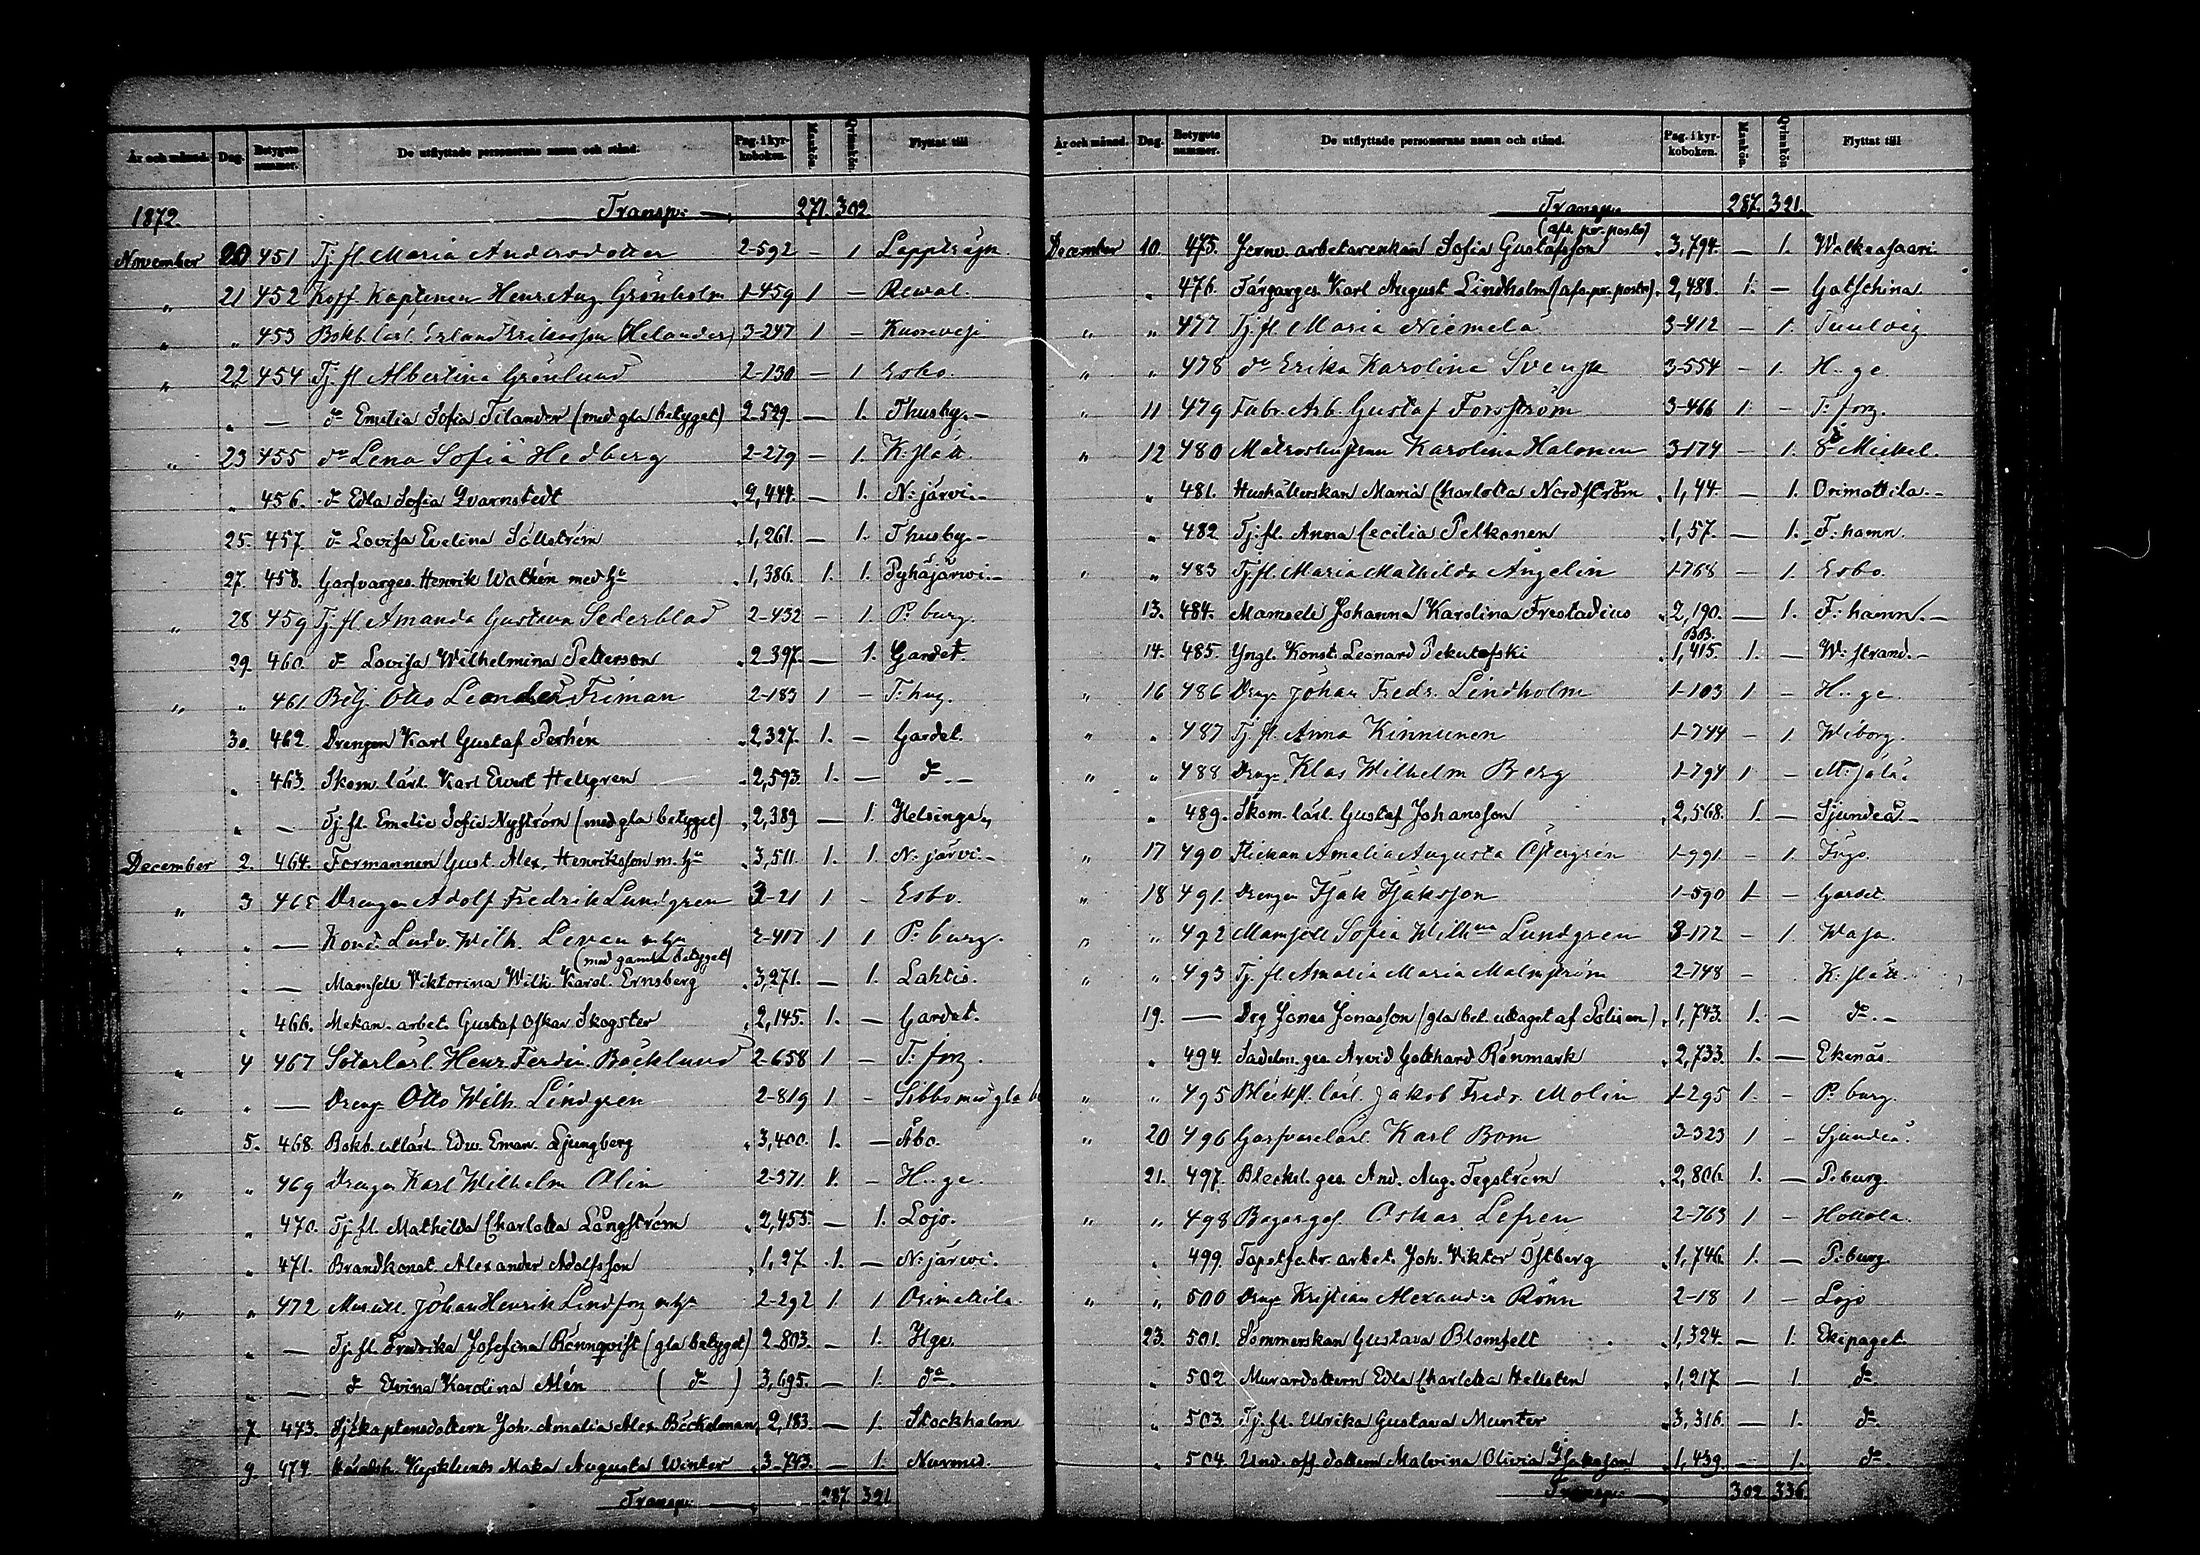 År och månad. Dag. Betygets nummer. De utflyttade personernas namn och stånd. Pag. i kyrkoboken. Mankön. Qvinnkön. Flyttat till
1872. Transp: 271. 302
November 20 451 Tj. fl Maria Andersdotter 2-592 — 1
„ 21 452 Koff. Kaptenen Henr. Aug. Grönholm 1-459 1 — Rewal.
„ „ 453 Bokb. lärl. Erland Eriksson (Helander) 3-247 1 — Kuorevesi
„ 22 454 Tj. fl Albertina Grönlund 2-130 — 1 Esbo.
„ — do Emelia Sofia Tilander (med gla betyget) 2-529. — 1. Thusby. —
„ 23 455 do Lena Sofia Hedberg 2-279 — 1. K: slätt.
„ 456. do Edla Sofia Qvarnstedt 2,444. — 1. N: järvi. —
25. 457. do Lovisa Evelina Sällström 1,261. — 1. Thusby. —
27. 458. Garfvareges. Henrik Walhén med hu 1,386. 1. 1. Pyhäjärwi. —
„ 28 459 Tj. fl. Amanda Gustava Sederblad 2-432 — 1. P: burg.
29. 460. do Lovisa Wilhelmina Petterson 2-397. — 1. Gardet.
„ „ 461 Betj. Otto Leander Friman 2-183 1 — T: hus.
30. 462. Drengen Karl Gustaf Perhén 2,327. 1. — Gardet.
„ 463. Skom. lärl. Karl Evert Hellgren 2,593. 1. — do —
„ — Tj. fl. Emelie Sofia Nyström (med gla betyget) 2,389 — 1. Helsinge.
December 2. 464. Formannen Gust. Alex. Henriksson m. hu 3,511. 1. 1. N: järvi —
„ 3 465 Drengen Adolf Fredrik Lundgren 3-21 1 — Esbo.
„ „ — Kond. Ludv. Wilh. Leven m. hu 2-417 1 1 P: burg.
(med gamla betyget)
„ — Mamsell Viktorina Wilh. Karol. Ernsberg 3,271. — 1. Lahtis.
„ 466. Mekan. arbet. Gustaf Oskar Skogster 2,145. 1. — Gardet.
„ 4 467 Sotarlärl. Henr. Ferdin. Bäcklund 2-658 1 — T: fors.
„ „ — Dreng. Otto Wilh. Lindgren 2-819 1 — Sibbo med gla b
5. 468. Bokh. Edw. Eman. Ljungberg 3,400. 1. — Åbo.
„ „ 469 Drengen Karl Wilhelm Olin 2-371. 1. — H:ge.
„ 470. Tj. fl. Mathilda Charlotta Långström 2,455. — 1. Lojo.
„ 471. Brandkonst. Alexander Adolfsson 1,27. 1. — N: järwi.
„ „ 472 Johan Henrik Lindfors m. hu 2-292 1 1 Orimattila.
„ — Tj. fl. Fredrika Josefina Rönnqvist (gla betyget) 2-803. — 1. Hge.
„ — do Elvina Karolina Alén (do) 3,695. — 1. do.
7. 473. Sjökaptensdottern Joh. Amalia Alex. Böckelman 2,183. — 1. Stockholm
9. 474. Maka Augusta Winter 3-743. — 1. Nurmis.
Transp: 287. 321
År och månad. Dag. Betygets nummer. De utflyttade personernas namn och stånd. Pag. i kyrkoboken. Mankön. Qvinnkön. Flyttat till
Transp: 287. 321.
(afs. pr. posto)
December 10. 475. Jernv. arbetarenkan Sofia Gustafsson 3,794. — 1. Walkeasaari.
„ 476. Färgareges. Karl August Lindholm (afs. pr. posto). 2,488. 1. — Gatschina.
„ „ 477 Tj. fl. Maria Niemelä 3-412 — 1. Tuulois
„ „ 478 do Erika Karolina Svensk 3-554 — 1. H:ge.
„ 11 479 Fabr. Arb. Gustaf Forsström 3-466 1. — T: fors.
„ 12 480 Matroshustrun Karolina Halonen 3-174 — 1. St Mickel.
„ 481. Hushållerskan Maria Charlotta Nordström 1,44. — 1. Orimattila. —
„ 482 Tj. fl. Anna Cecilia Pelkonen 1,57. — 1. F: hamn.
„ „ 483 Tj. fl. Maria Mathilda Angelin 1-768 — 1. Esbo.
13. 484. Mamsell Johanna Karolina Frestadius 2,190. — 1. F: hamn. —
BB.
14. 485. Yngl. Konst. Leonard Pekutofski 1,415. 1. — W: strand. —
„ 16 486 Dreng. Johan Fredr. Lindholm 1-103 1. — H:ge.
„ „ 487 Tj. fl. Anna Kinnunen 1-744 — 1 Wiborg.
„ „ 488 Dreng. Klas Wilhelm Berg 1-794 1 —
„ 489. Skom. lärl. Gustaf Johansson 2,568. 1. — Sjundeå —
„ 17 490 Flickan Amalia Augusta Östergren 1-991 — 1. Ingo.
„ 18 491. Drengen Isak Isaksson 1-590 1 — Gardet.
„ „ 492 Mamsell Sofia Wilhna Lundgren 3-172 — 1. Wasa.
„ „ 493 Tj. fl Amalia Maria Malmström 2-748 — K: slätt.
19. — Drg Jonas Jonasson (gla bet. uttaget af Polisen) 1,743. 1. — do. —
„ 494. Sadelm. ges. Arvid Gotthard Rönmark 2,733. 1. — Ekenäs.
„ „ 495 Blecksl. lärl. Jakob Fredr. Molin 1-295 1. — P: burg.
„ 20 496 Garfvarelärl. Karl Bom 3-323 1 — Sjundeå.
21. 497. Blecksl. ges. And. Aug. Tegström 2,806. 1. — P: burg.
„ „ 498 Bagarges. Oskar Lefren 2-763 1 — Hollola.
„ 499. Tapetfabr. arbet. Joh. Viktor Östberg 1,746. 1. — P: burg.
„ „ 500 Dreng Kristian Alexander Rönn 2-18 1 — Lojo
23. 501. Sömmerskan Gustava Blomfelt 1,324. — 1. Ekipaget.
„ 502 Murardottern Edla Charlotta Hellsten 1,217 — 1. do.
„ 503. Tj. fl. Ulrika Gustava Munter 3,316. — 1. do.
„ 504. Und. off. dottern Malvina Olivia Isaksson 1,439. — 1. do.
Transp: 302 336